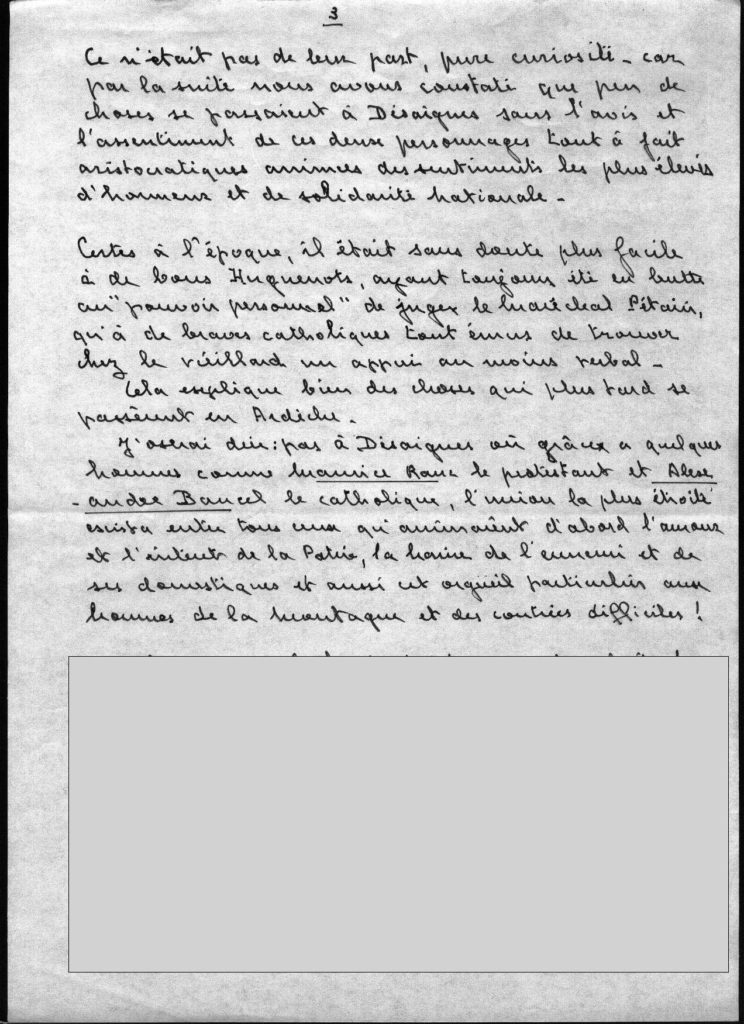 3
Ce n'était pas de leur part, pure curiosité - car
par la suite nous avons constaté que peu de
choses se passaient à Désaignes sans l'avis et
l'assentiment de ces deux personnages tout à fait
aristocratiques animées des sentiments les plus élevés
d'honneur et de solidarité nationale -
Certes à l'époque, il était sans doute plus facile
à de bons Huguenots, ayant toujours été en butte
au "pouvoir personnel" de juger le Maréchal Pétain,
qu'à de braves catholiques tout émus de trouver
chez le vieillard un appui au moins verbal -
Cela explique bien des choses qui plus tard se
passèrent en Ardèche.
J'oserai dire : pas à Désaignes où grâce a quelques
hommes comme Maurice Ranc le protestant et Alex
-andre Bancel le catholique, l'union la plus étroite
exista entre tous ceux qu'animaient d'abord l'amour
et l'intérêt de la Patrie, la haine de l'ennemi et de
ses domestiques et aussi cet orgueil particulier aux
hommes de la montagne et des contrées difficiles !